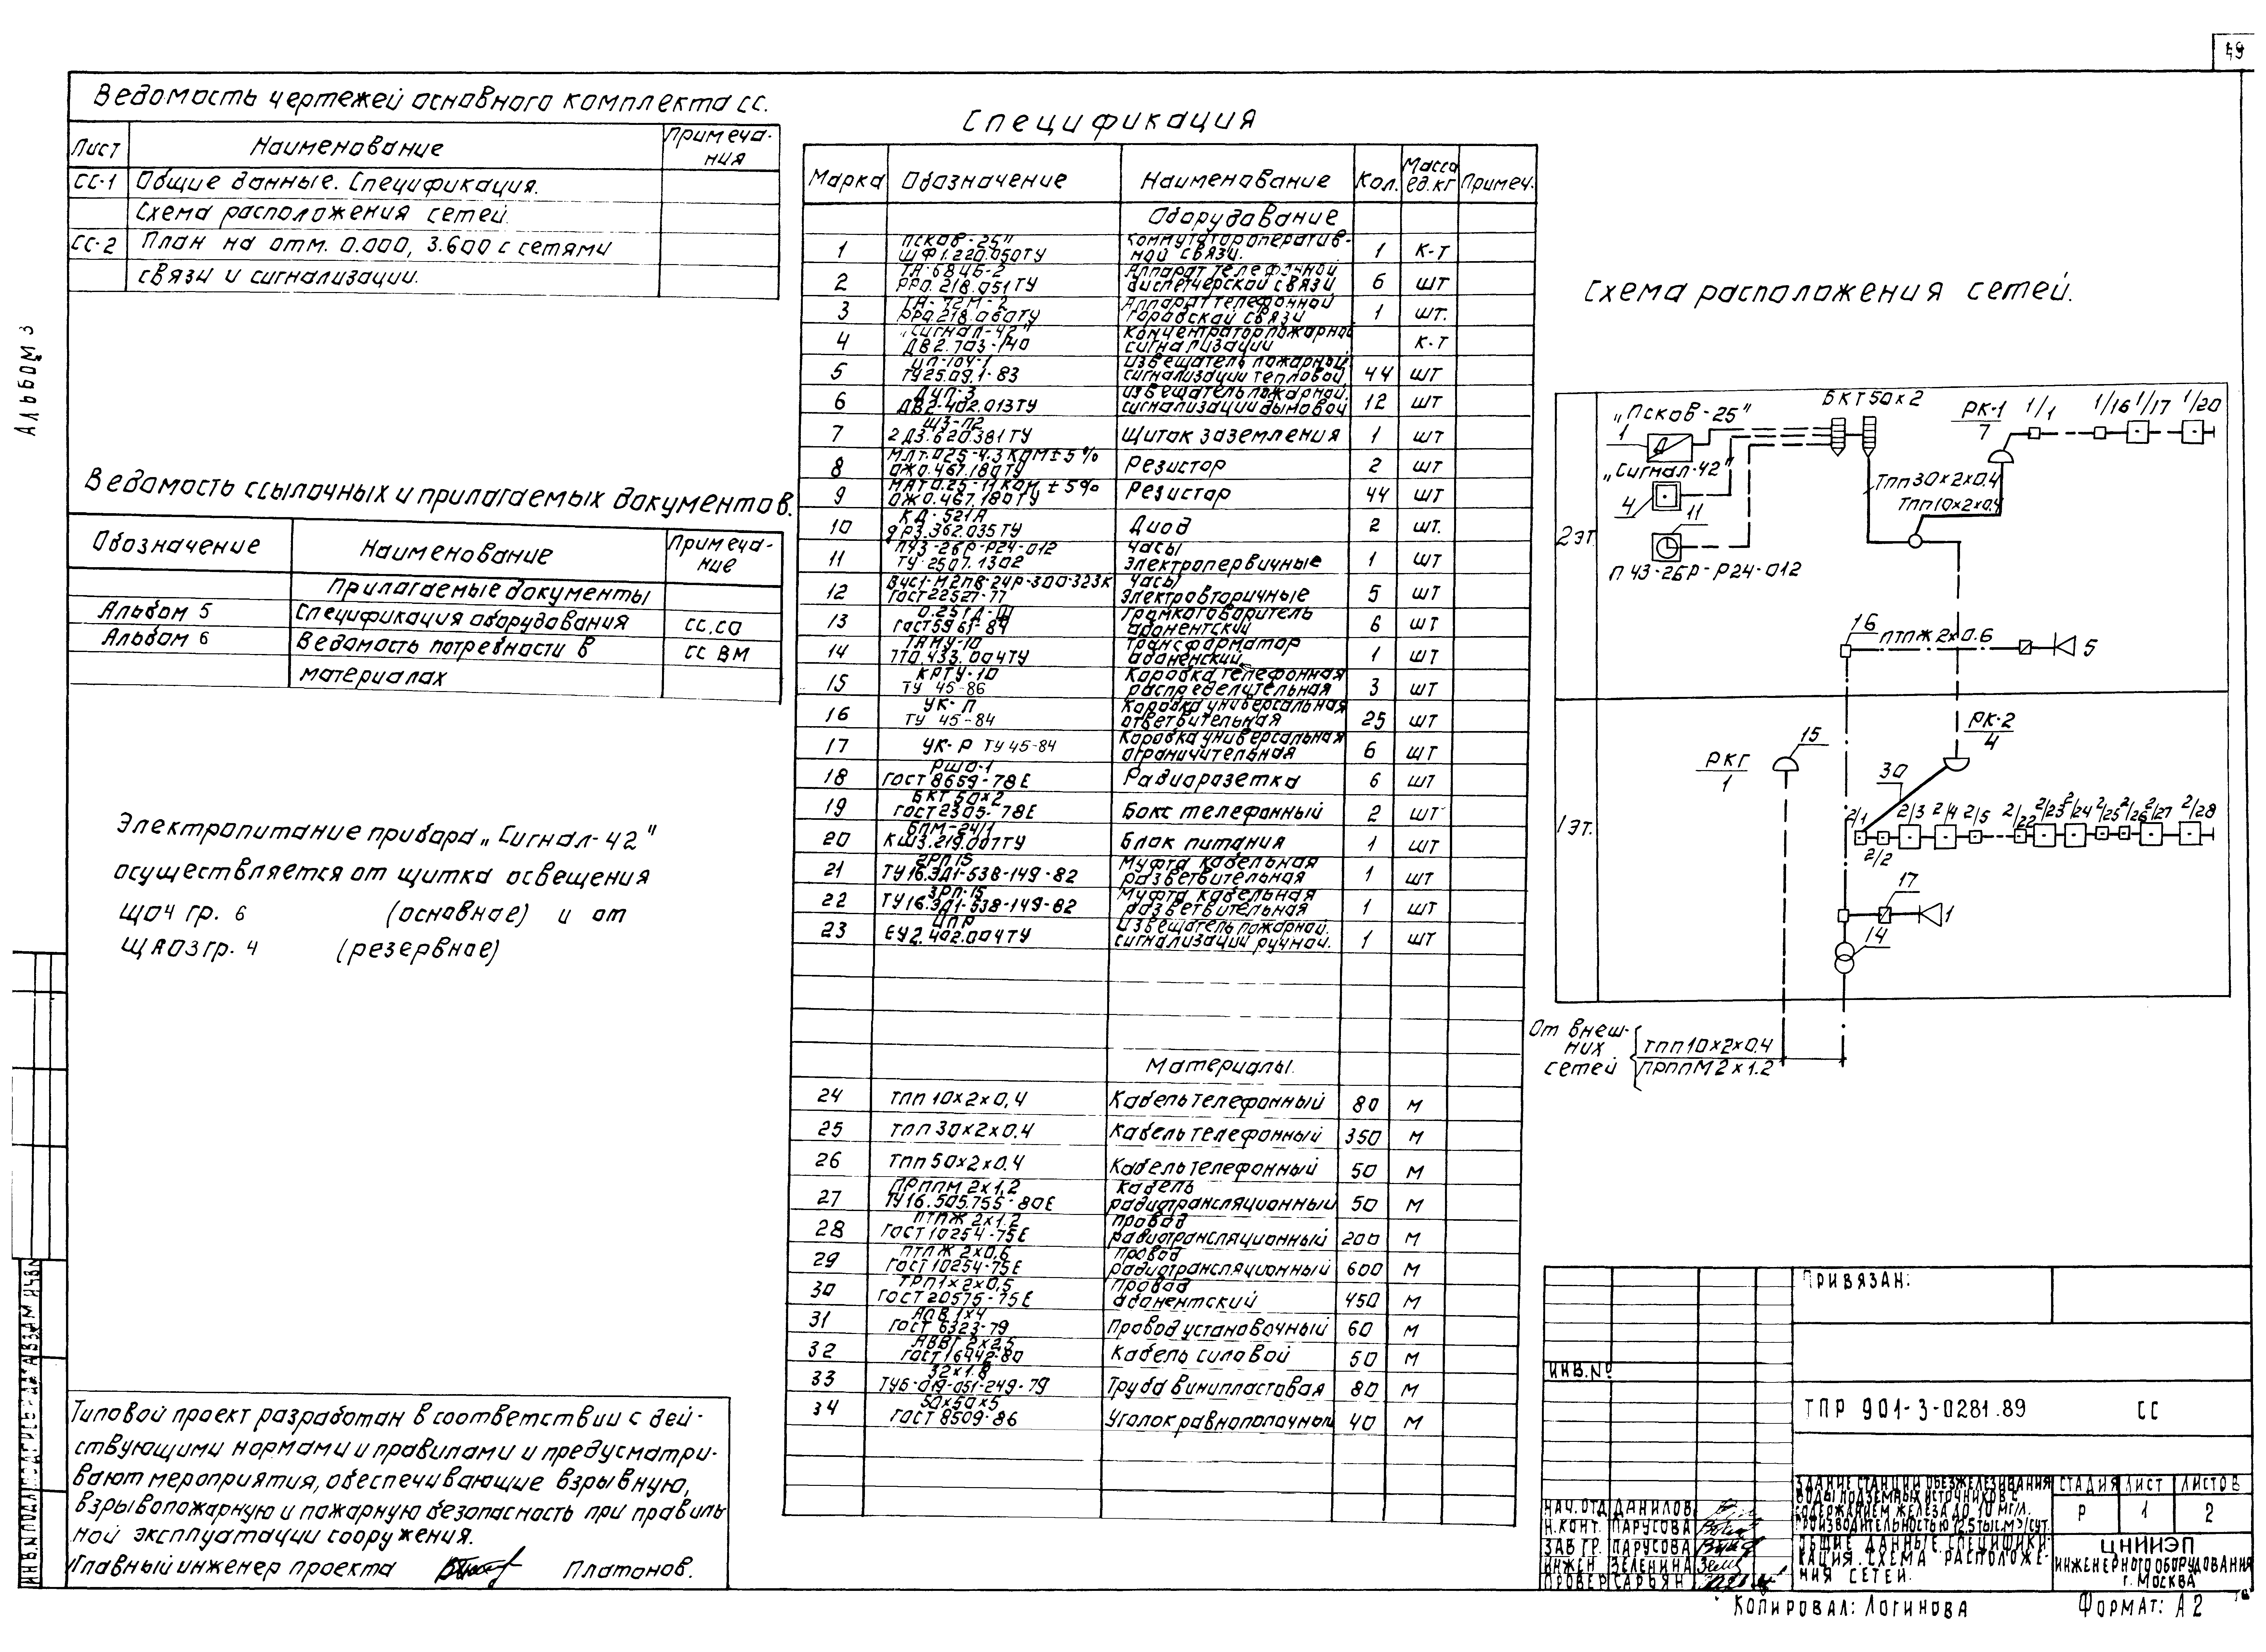 49
Альбом 3
Ведомость чертежей основного комплекта СС.
Лист Наименование Примеча-
ния
СС-1 Общие данные. Спецификация.
Схема расположения сетей.
СС-2 План на отм. 0.000, 3.600 с сетями
связи и сигнализации.
Ведомость ссылочных и прилагаемых документов.
Обозначение Наименование Примеча-
ние
Прилагаемые документы
Альбом 5 Спецификация оборудования СС.СО
Альбом 6 Ведомость потребности в СС ВМ
материалах
Электропитание прибора „Сигнал-42"
осуществляется от щитка освещения
ЩО4 гр. 6 (основное) и от
ЩАО3 гр. 4 (резервное)
Типовой проект разработан в соответствии с дей-
ствующими нормами и правилами и предусматри-
вают мероприятия, обеспечивающие взрывную,
взрывопожарную и пожарную безопасность при правиль
ной эксплуатации сооружения.
Главный инженер проекта Платонов.
Спецификация
Марка Обозначение Наименование Кол. Масса ед.кг Примеч.
Оборудование
1 Псков-25" ШФ1.220.050ТУ Коммутатор оператив-ной связи. 1 К-Т
2 ТА-68ЦБ-2 РРО.218.051ТУ Аппарат телефонной диспетчерской связи 6 шт
3 ТА-72М-2 РРО.218.060ТУ Аппарат телефонной городской связи 1 шт.
4 „Сигнал-42" ДВ2.703-140 Концентратор пожарной сигнализации К-Т
5 ИП-104-1 ТУ25.09.1-83 Извещатель пожарный сигнализации тепловой 44 шт
6 ДИП-3 ДВ2.402.013ТУ Извещатель пожарной. сигнализации дымовой 12 шт
7 ЩЗ-П2 2 ДЗ.620.381ТУ Щиток заземления 1 шт
8 МЛТ.025-4.3 КОМ±5% ОЖ0.467.180ТУ Резистор 2 шт
9 МЛТ0.25-11КОМ ±5% ОЖ0.467.180ТУ Резистор 44 шт
10 КД-521А дР3.362.035ТУ Диод 2 шт.
11 ПЧЗ-2БР-Р24-012 ТУ-2507.1302 Часы электропервичные 1 шт
12 ВЧС1-М2ПВ-24Р-300-323К ГОСТ22527-77 Часы электровторичные 5 шт
13 0.25ГД-Ш ГОСТ5961-84 Громкоговоритель абонентский 6 шт
14 ТАМУ-10 7Т0.433.004ТУ Трансформатор абоненский 1 шт
15 КРТУ-10 ТУ 45-86 Коробка телефонная распределительная 3 шт
16 УК-П ТУ 45-84 Коробка универсальная ответвительная 25 шт
17 УК-Р ТУ45-84 Коробка универсальная ограничительная 6 шт
18 РШО-1 ГОСТ8659-78Е Радиорозетка 6 шт
19 БКТ 50×2 ГОСТ2305-78Е Бокс телефонный 2 шт
20 БПМ-24/1 КШ3.219.007ТУ Блок питания 1 шт
21 2РП15 ТУ16.ЭД1-538-149-82 Муфта кабельная разветвительная 1 шт
22 3РП-15 ТУ16.ЭД1-538-149-82 Муфта кабельная разветвительная 1 шт
23 ИПР ЕУ2.402.004ТУ Извещатель пожарной. сигнализации ручной. 1 шт
Материалы.
24 ТПП 10×2×0,4 Кабель телефонный 80 м
25 ТПП 30×2×0.4 Кабель телефонный 350 м
26 ТПП 50×2×0.4 Кабель телефонный 50 м
27 ПРППМ 2×1,2 ТУ16.505.755-80Е Кабель радиотрансляционный 50 м
28 ПТПЖ 2×1.2 ГОСТ10254-75Е Провод радиотрансляционный 200 м
29 ПТПЖ 2×0,6 ГОСТ10254-75Е Провод радиотрансляционный 600 м
30 ТРП1×2×0,5 ГОСТ20575-75Е Провод абонентский 450 м
31 АПВ 1×4 ГОСТ 6323-79 Провод установочный 60 м
32 АВВГ 2×2.5 ГОСТ16442-80 Кабель силовой 50 м
33 32×1.8 ТУ6-019-051-249-79 Труба винипластовая 80 м
34 50×50×5 ГОСТ 8509-86 Уголок равнополочный 40 м
Схема расположения сетей.
2 эт.
„Псков-25" БКТ50×2 РК-1 1/1 1/16 1/17 1/20
1 7
„Сигнал-42"
4 11
ТПП30×2×0.4
ТПП10×2×0.4
ПЧЗ-2БР-Р24-012
16 ПТПЖ 2×0.6 5
1 эт.
15 РК-2
4
РКГ
1
30
2/1 2/3 2/4 2/5 2/22 2/23 2/24 2/25 2/26 2/27 2/28
2/2
17
1
14
От внеш-
них
сетей
ТПП10×2×0.4
ПРППМ 2×1.2
Привязан:
Инв.№
ТПР 901-3-0281.89 СС
Здание станции обезжелезивания
воды подземных источников с
содержанием железа до 10 мг/л.
производительностью 12.5 тыс.м³/сут.
Стадия Лист Листов
Р 1 2
Общие данные. Специфи-
кация. Схема расположе-
ния сетей.
ЦНИИЭП
инженерного оборудования
г. Москва
Нач.отд Данилов
Н.конт. Парусова
Зав гр. Парусова
Инжен Зеленина
Провер Сарьян
Копировал: Логинова Формат: А2